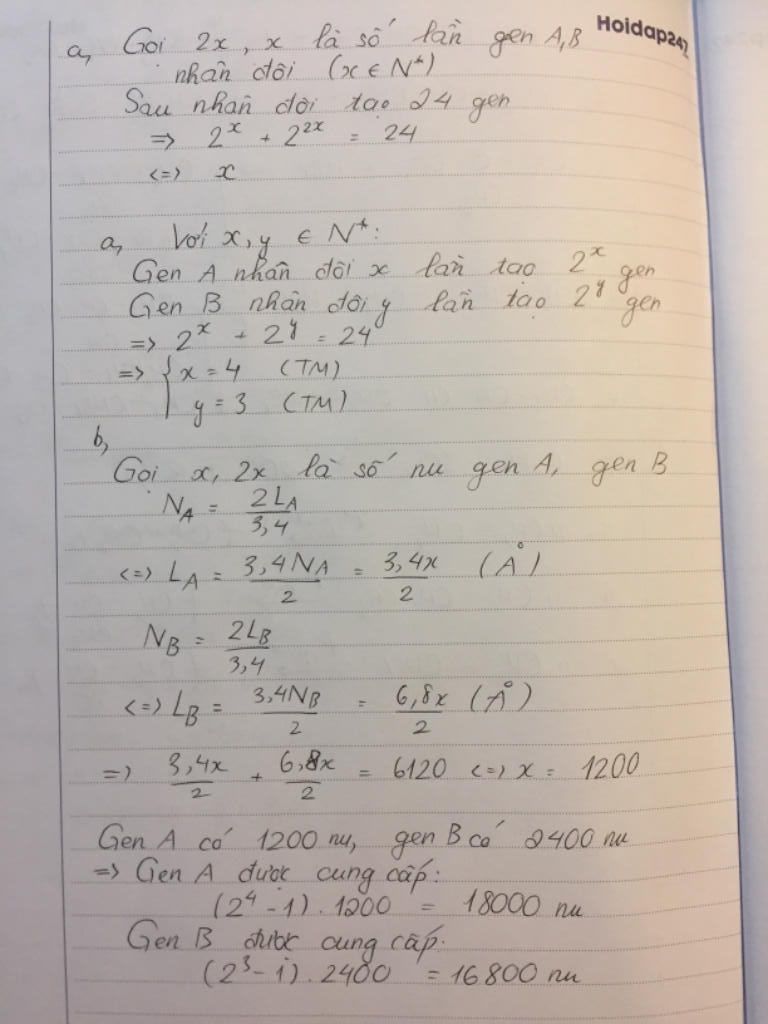 Hoidap247
a, Gọi 2x, x là số lần gen A, B
nhân đôi (x ∈ N*)
Sau nhân đôi tạo 24 gen
=> 2^x + 2^2x = 24
<=> x
a, Với x, y ∈ N*:
Gen A nhân đôi x lần tạo 2^x gen
Gen B nhân đôi y lần tạo 2^y gen
=> 2^x + 2^y = 24
=> { x = 4 (TM)
y = 3 (TM)
b,
Gọi x, 2x là số nu gen A, gen B
N_A = 2L_A / 3,4
<=> L_A = 3,4N_A / 2 = 3,4x / 2 (Å)
N_B = 2L_B / 3,4
<=> L_B = 3,4N_B / 2 = 6,8x / 2 (Å)
=> 3,4x / 2 + 6,8x / 2 = 6120 <=> x = 1200
Gen A có 1200 nu, gen B có 2400 nu
=> Gen A được cung cấp:
(2^4 - 1) . 1200 = 18000 nu
Gen B được cung cấp:
(2^3 - 1) . 2400 = 16800 nu